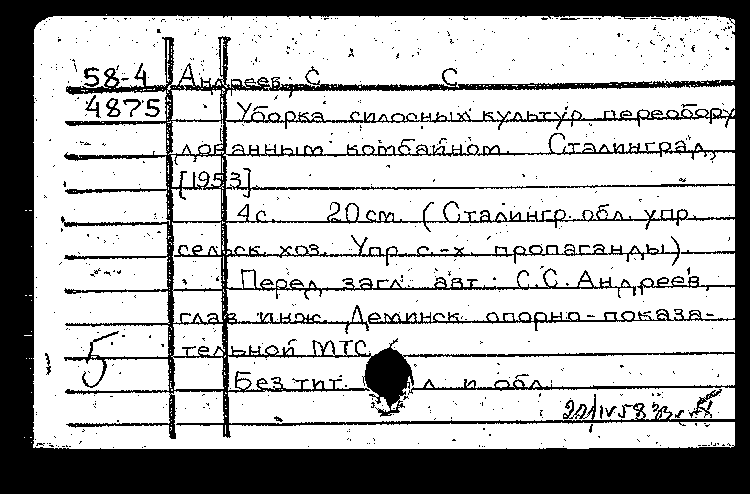 58-4 Андреев, С С
4875 Уборка силосных культур переобору
дованным комбайном. Сталинград,
[1953].
4с. 20см. (Сталингр. обл. упр.
сельск. хоз. Упр. с.-х. пропаганды).
Перед загл. авт.: С.С. Андреев,
глав. инж. Деминск. опорно-показа-
тельной МТС
5
Без тит. л. и обл.